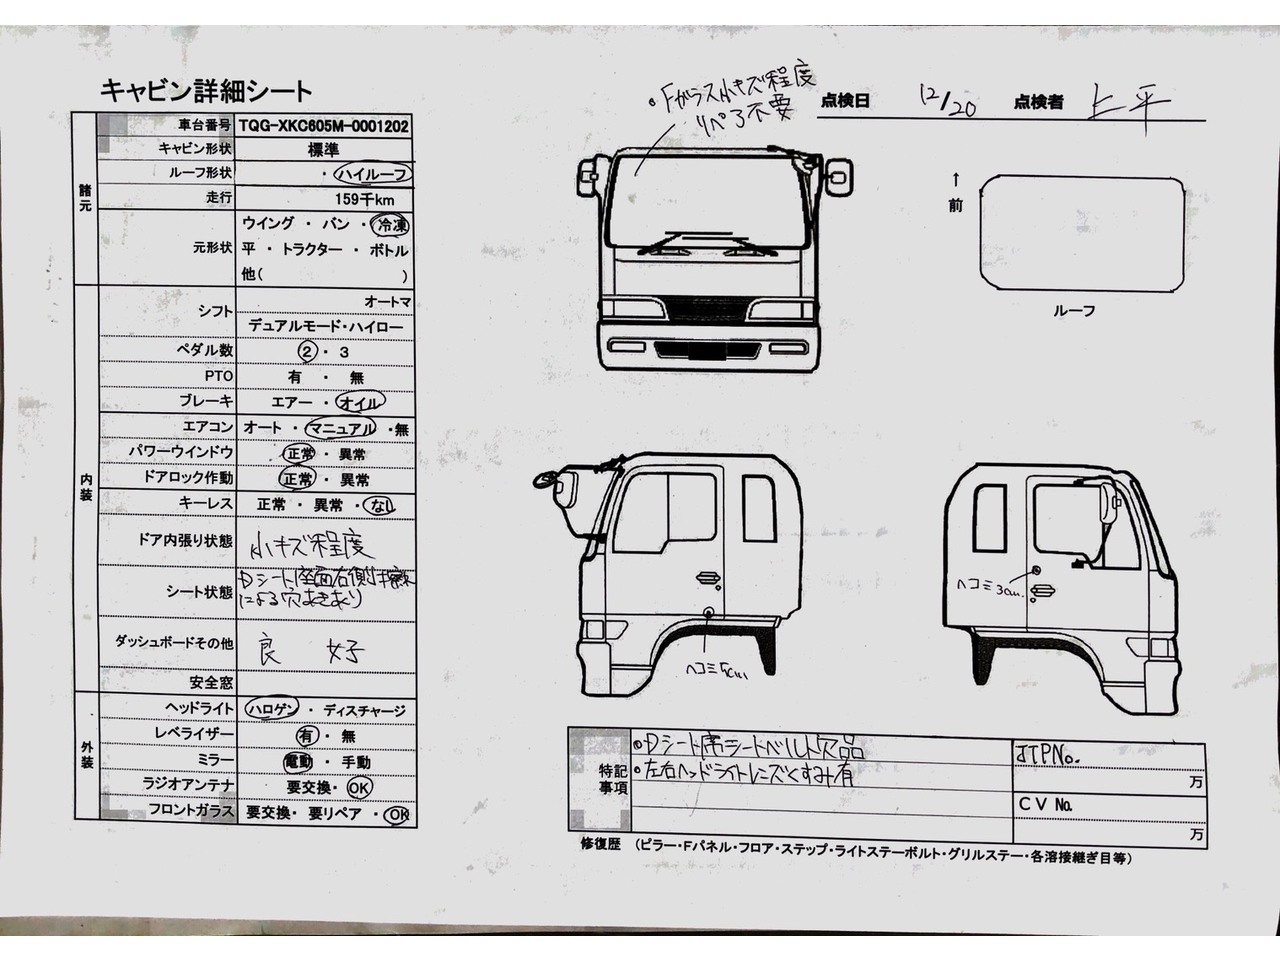 キャビン詳細シート
点検日 12/20 点検者
・Fガラス小キズ程度
リペア不要
諸元
車台番号 TQG-XKC605M-0001202
キャビン形状 標準
ルーフ形状 ・ハイルーフ
走行 159千km
元形状 ウイング ・ バン ・ 冷凍
平 ・ トラクター ・ ボトル
他( )
内装
シフト オートマ
デュアルモード・ハイロー
ペダル数 2 ・ 3
PTO 有 ・ 無
ブレーキ エアー ・ オイル
エアコン オート ・ マニュアル ・無
パワーウインドウ 正常 ・ 異常
ドアロック作動 正常 ・ 異常
キーレス 正常 ・ 異常 ・ なし
ドア内張り状態 小キズ程度
シート状態 Dシート座面右側
による穴あきあり
ダッシュボードその他 良 好
安全窓
外装
ヘッドライト ハロゲン ・ ディスチャージ
レベライザー 有 ・ 無
ミラー 電動 ・ 手動
ラジオアンテナ 要交換・ OK
フロントガラス 要交換・ 要リペア ・ OK
↑
前
ルーフ
ヘコミ5cm
ヘコミ3cm.
特記
事項
・Dシート席シートベルト欠品
・左右ヘッドライトレンズくすみ有
JTPNo.
万
CV No.
万
修復歴 (ピラー・Fパネル・フロア・ステップ・ライトステーボルト・グリルステー・各溶接継ぎ目等)